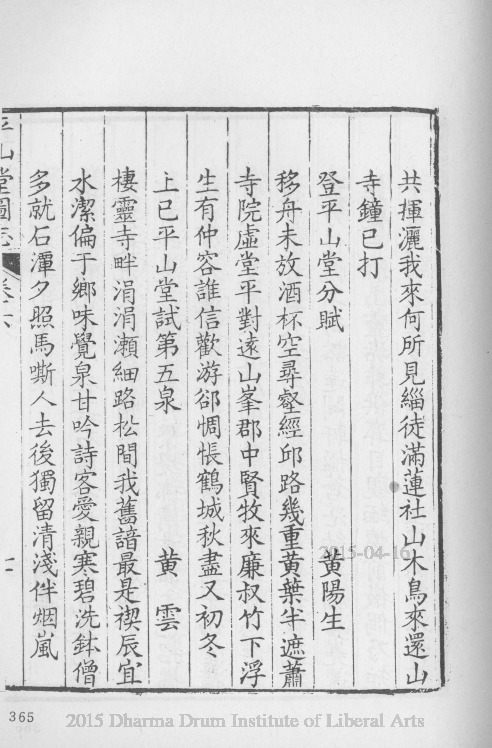 共揮灑我來何所見緇徒滿蓮社山木鳥來還山
寺鐘已打
登平山堂分賦 黃陽生
移舟未放酒杯空尋壑經邱路幾重黃葉半遮蕭
寺院虛堂平對遠山峯郡中賢牧來廉叔竹下浮
生有仲容誰信歡游卻惆悵鶴城秋盡又初冬
上巳平山堂試第五泉 黃雲
棲靈寺畔涓涓瀨細路松間我舊諳最是禊辰宜
水潔偏于鄉味覺泉甘吟詩客愛親寒碧洗鉢僧
多就石潭夕照馬嘶人去後獨留清淺伴烟嵐
平山堂圖志 卷六 十一
365
2015 Dharma Drum Institute of Liberal Arts
2015-04-16